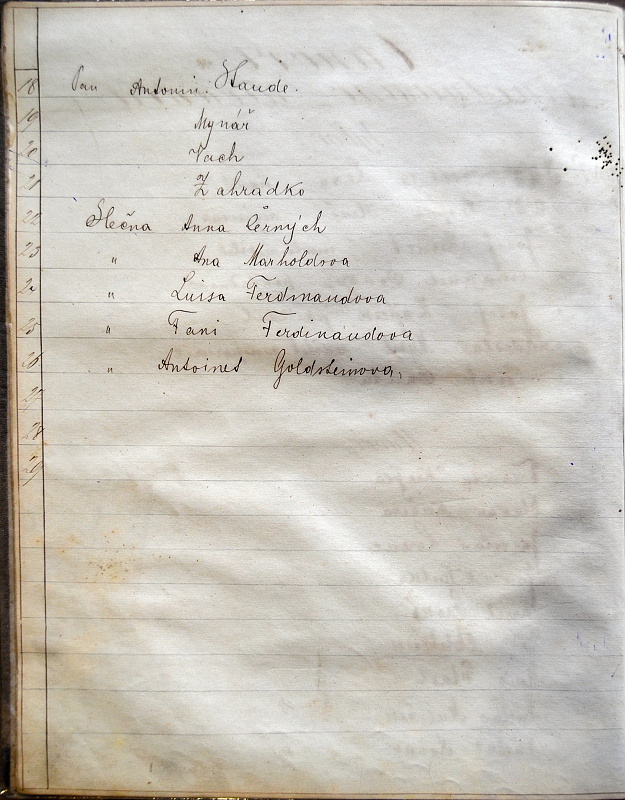 18 Pan Antonin. Staude.
19 Mynář
20 Vach
21 Zahrádko
22 Slečna Anna Černých
23 " Ana Marholdova
24 " Luisa Ferdinandova
25 " Fani Ferdinandova
26 " Antoinet Goldsteinova,
27
28
29